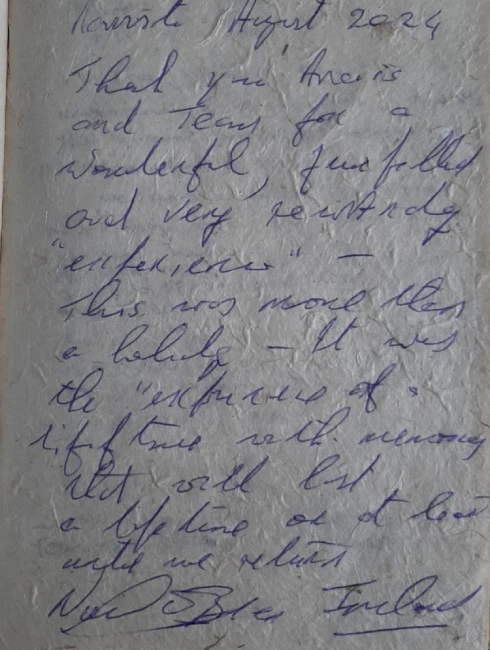 August 2024
That you
and Team for a
wonderful, funfilled
and very rewarding
"experience" —
This was more than
a holiday — It was
the "experience of a
lifetime with memories
that will last
a life time or at least
until we return
Ireland